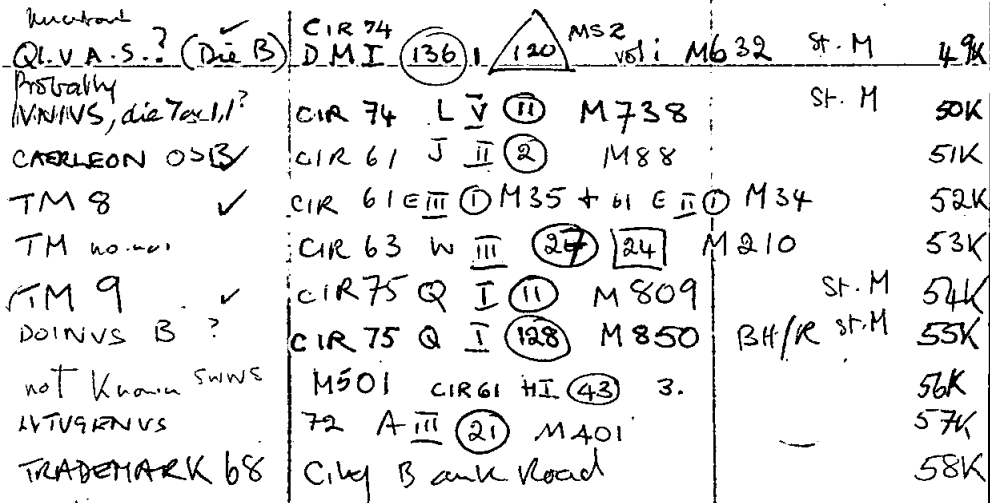 QI.V.A.S.? (Die B) ✓ CIR 74 DMI (136) 1 /120\ MS2 vol i M632 St. M 49K
Probably
IVNIVS, die ? CIR 74 L V (11) M738 St. M 50K
CAERLEON OSB ✓ CIR 61 J II (2) M88 51K
TM 8 ✓ CIR 61 E III (1) M35 + 61 E II (1) M34 52K
TM CIR 63 W III (27) [24] M210 53K
TM 9 ✓ CIR75 Q I (11) M809 St. M 54K
DOINVS B ? CIR 75 Q I (128) M850 BH/R St. M 55K
not Known M501 CIR61 HI (43) 3. 56K
LVTVGENVS 72 A III (21) M401 57K
TRADEMARK 68 City Bank Road 58K